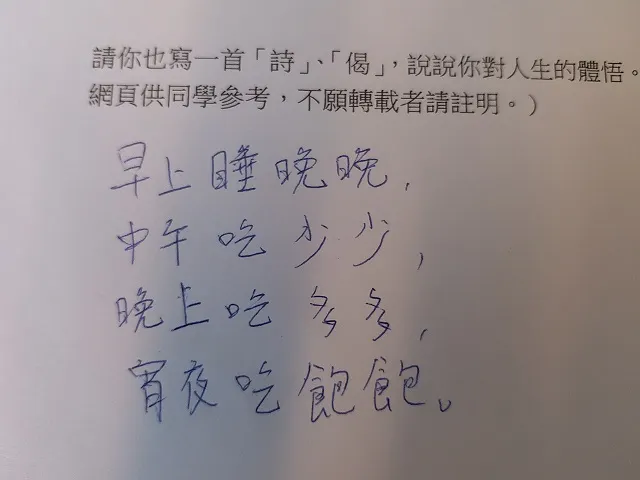 請你也寫一首「詩」、「偈」，說說你對人生的體悟。
網頁供同學參考，不願轉載者請註明。）
早上睡晚晚，
中午吃少少，
晚上吃多多，
宵夜吃飽飽。